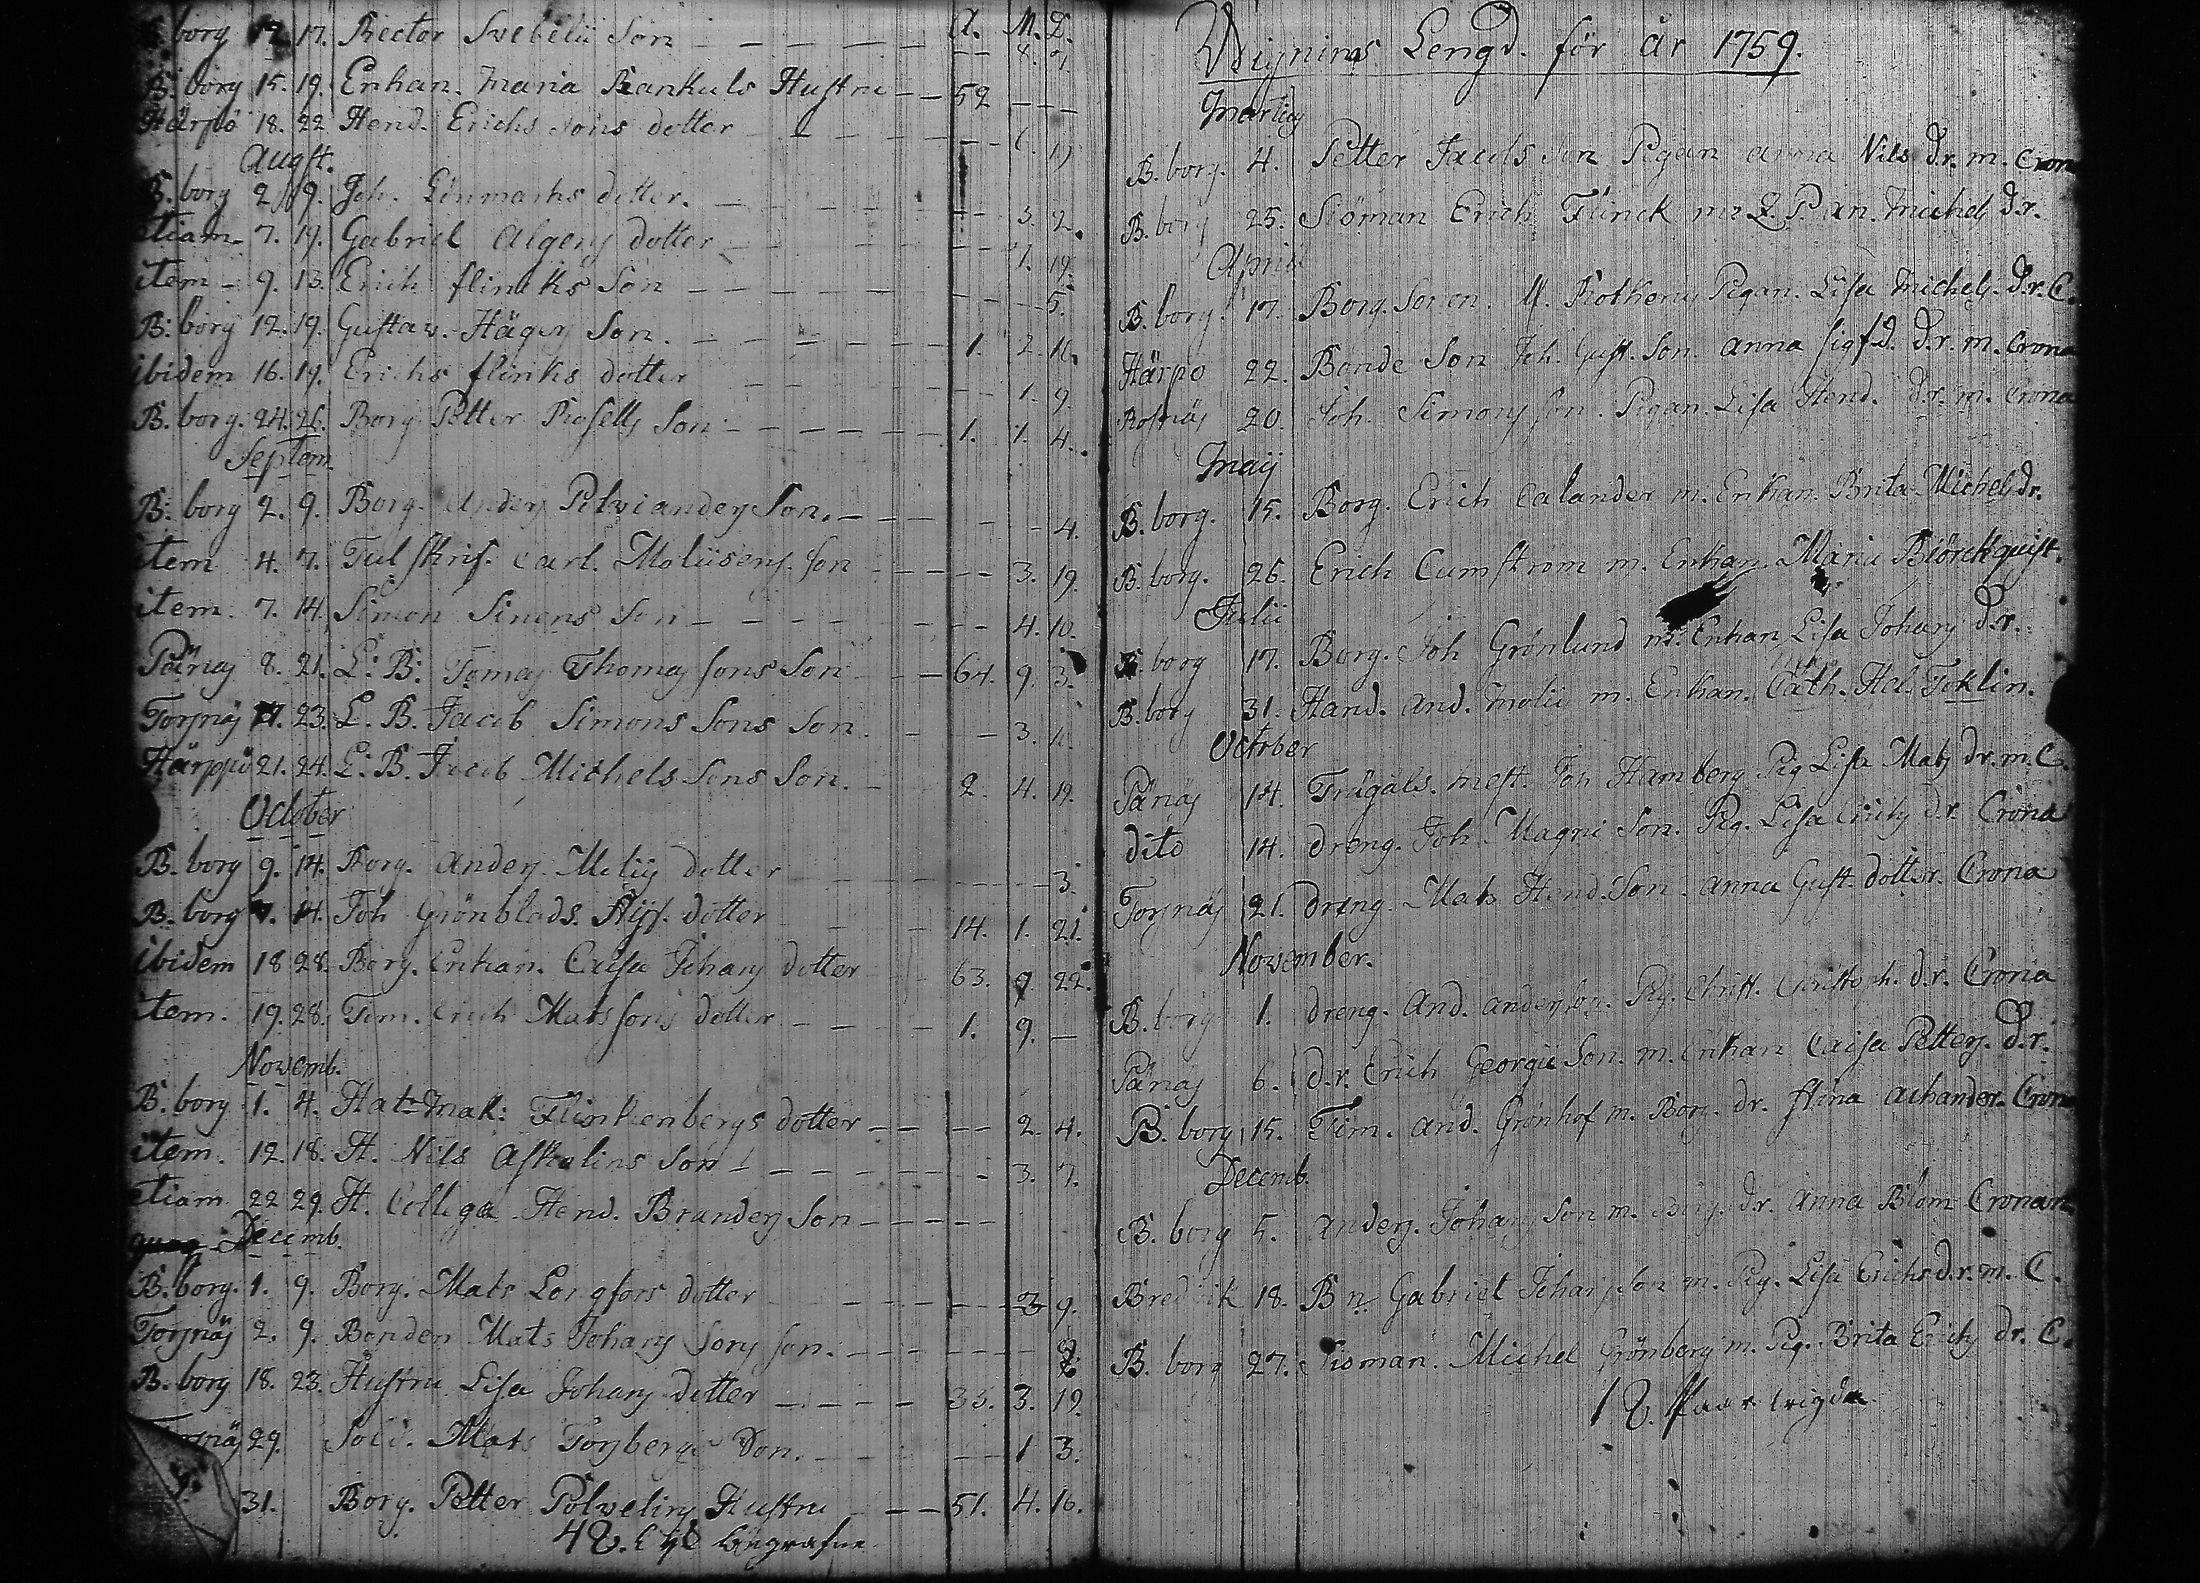 B. borg 12. 17. Rector Svebelii Son — — — — — — 4. 7.
A. M. D.
B. borg 15. 19. Enkan. Maria Bankuls Hustru — — 52 — — —
Härpö 18. 22 Hend. Erichs Sons dotter — — — — — 6. 19
Augst.
B. borg 2. 9. Joh. Linmarks dotter. — — — — — — 3. 2.
etiam. 7. 19. Gabriel Algens dotter — — — — — — 1. 19.
item — 9. 13. Erich flinks Son — — — — — — — — 5.
B: borg 12. 19. Gustav. Häger Son. — — — — — — 1. 2. 16.
ibidem 16. 19. Erichs flinks dotter — — — — — — 1. 9.
B. borg. 24. 26. Borg Petter Rosells Son — — — — — — 1. 1. 4.
Septem
B. borg 2. 9. Borg. Anders Polvianders Son. — — — — — 4.
item 4. 7. Tul skrif. Carl. Moliisens. Son — — — — 3. 19.
item. 7. 14. Simon Sinens Son — — — — — — — 4. 10.
Pänäs 8. 21. L: B: Tomas Thomas sons Son — — 64. 9. 3.
Torsnäs 17. 23. L. B. Jacob Simons Sons Son — — 3. 10.
Härppö 21. 24. L: B. Jacob Michels Sons Son. — 2. 4. 19.
October
B. borg 9. 14. Borg. Anders Molijs dotter — — — — — 3.
B. borg 7. 14. Joh Grönblads. dotter — — 14. 1. 21.
ibidem 18 28. Borg. Enkan. Caisa Johans dotter — 63. 9. 22.
item. 19. 28. Tim. Erich Mats sons dotter — — — — 1. 9. —
Novemb.
B. borg. 1. 4. Hat Mak: Flinkenbergs dotter — — — — 2. 4.
item. 12. 18. H. Nils Askolins Son — — — — — — — 3. 7.
etiam. 22 29. H. Collega Hend. Branders Son — — — — —
Decemb.
B. borg. 1. 9. Borg. Mats Longfors dotter — — — — — 3 9.
Torsnäs 2. 9. Bonden Mats Johans Sons son. — — — — — —
B. borg 18. 23. Hustru Lisa Johans dotter — — — — 35. 3. 19.
Torsnäs 29. Sold. Mats Torsbergs Son. — — — — — 1 3.
31. Borg. Petter Polvelins Hustru — — 51. 4. 16.
48. begrafne.
Wignings Lengd. för år 1759.
Martij
B. borg. 4. Petter Jacobs Son Pigan Anna Nils d.r. m. Cron
B. borg 25. Siöman Erich Flinck m. Pan. Michels d.r.
April
B. borg. 17. Borg. Sonen. M. Rothonus Pigan. Lisa Michels. d.r. C.
Härpo 22. Bonde Son Joh. Gust. Son. Anna Sigf.d. d.r. m. Crona
Rosnäs 20. Joh. Simons son. Pigan. Lisa Hend. d.r. m. Crona
Maij
B. borg. 15. Borg. Erich Calander m. Enkan. Brita Michels dr.
B. borg. 26. Erich Cumstrom m. Enkan. Maria Biörckquist.
Julii
B. borg 17. Borg. Joh Grönlund m. Enkan Lisa Johans d.r.
B. borg 31. Hand. And. Molii m. Enkan. Cath. Hel. Toklin.
October
Pänäs 14. Trägals. mest. Joh Hamberg Pig Lisa Mats dr. m. C.
dito 14. dreng. Joh. Magni Son. Pig. Lisa Erichs d.r. Crona
Torsnäs 21. dreng. Mats Hend. Son. Anna Gust. dotter. Crona
November.
B. borg 1. dreng. And. Anderson. Pig. Christ. Christoph. d.r. Crona
Pänäs 6. d.r. Erich Georgii Son. m. Enkan Caisa Petters. d.r.
B. borg 15. Tim. And. Grönhof m. Borg. dr. Stina Achander. Crona
Decemb.
B. borg 5. Anders. Johans Son m. Borg. d.r. Anna Blom Cronan
Bredvik 18. Bn Gabriel Johans Son m. Pig. Lisa Erichs d.r. m. C.
B. borg 27. Sioman. Michel Grönberg m. Pig. Brita Erichs dr. C.
18. Paar wigda